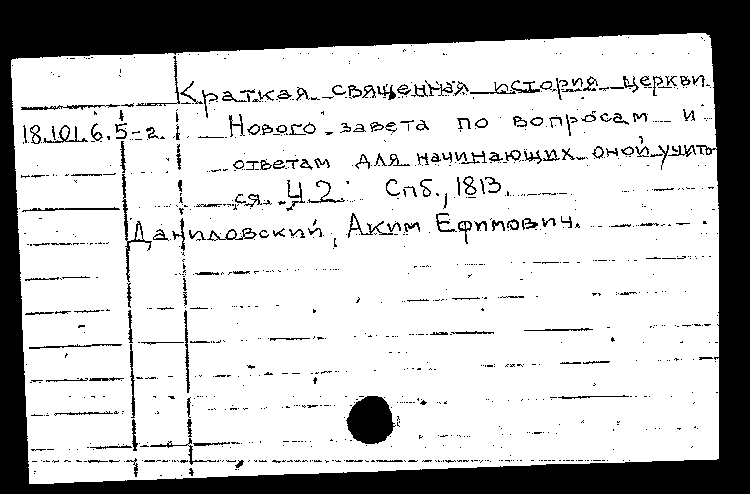 Краткая священная история церкви
18.101.6.5-2. Нового завета по вопросам и
ответам для начинающих оной учить
ся. Ч 2. Спб., 1813.
Даниловский, Аким Ефимович.